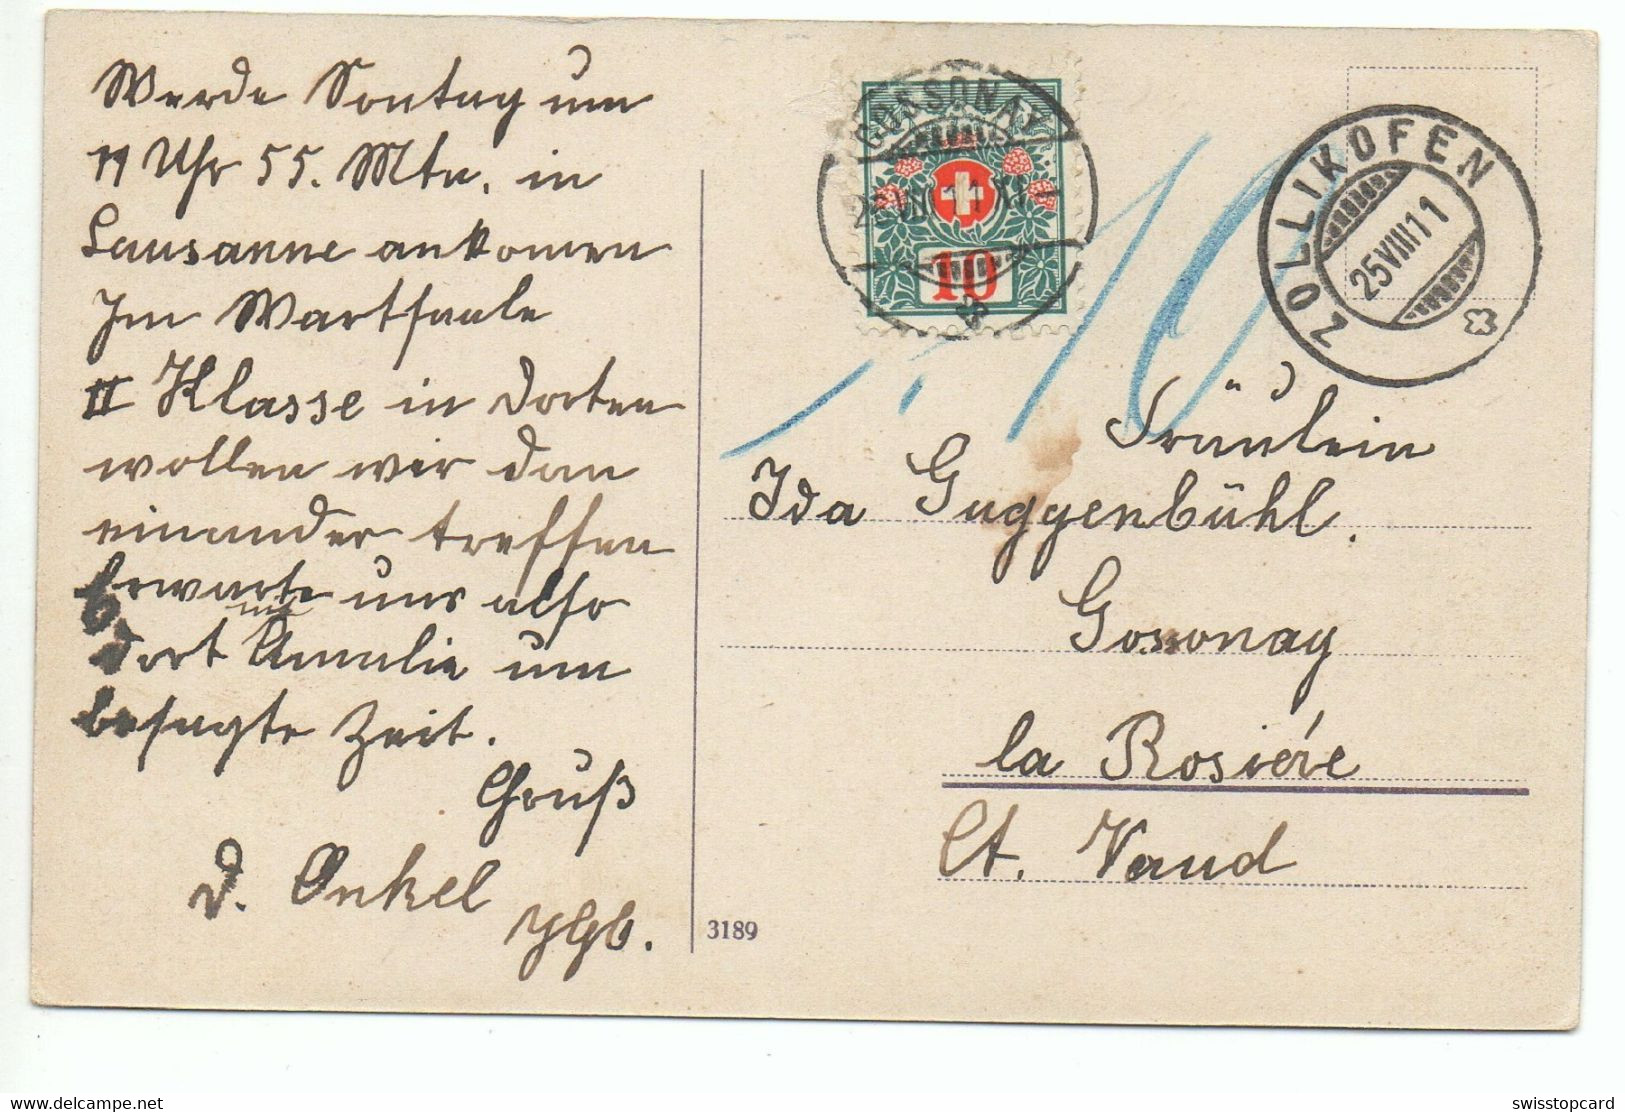 Werde Sontag um
11 Uhr 55. Mtn. in
Lausanne ankomen
Im Wartsaale
II Klasse in dorten
wollen wir dan
einander treffen
Erwarte uns also
mit
dort Amalie um
besagte Zeit.
Gruß
d. Onkel
COSSONAY
VIII 11 XI
10
10
ZOLLIKOFEN
25 VIII 11
Fräulein
Ida Guggenbühl.
Gossonay
la Rosiére
Ct. Vaud
3189
www.delcampe.net
swisstopcard